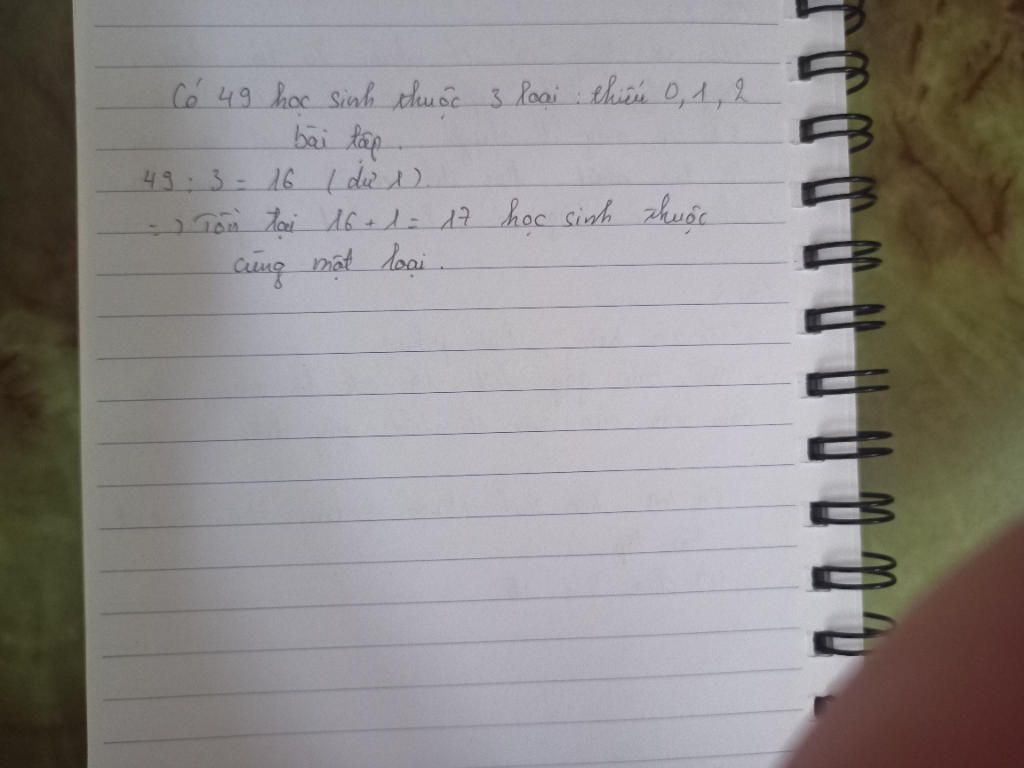 Có 49 học sinh thuộc 3 loại : thiếu 0, 1, 2
bài tập.
49 : 3 = 16 (dư 1)
=> Tồn tại 16 + 1 = 17 học sinh thuộc
cùng một loại.